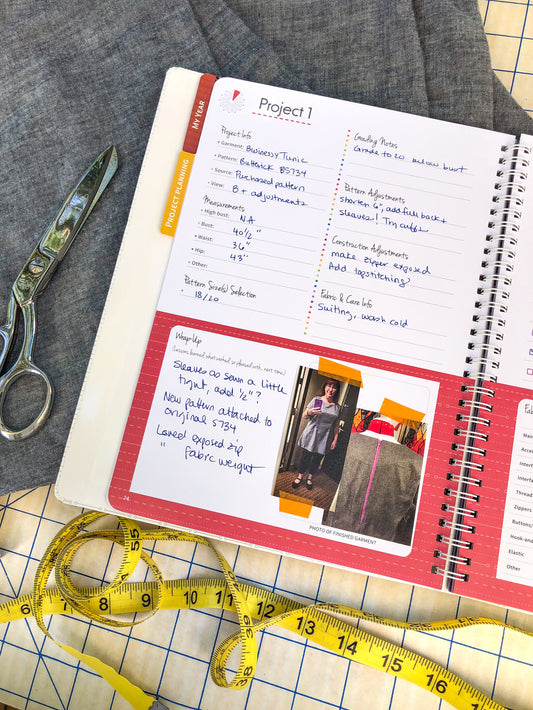 MY YEAR
PROJECT PLANNING
Project 1
Project Info
• Garment: Businessy Tunic
• Pattern: Butterick B5734
• Source: Purchased pattern
• View: B + adjustments
Measurements
• High bust: NA
• Bust: 40 1/2"
• Waist: 36"
• Hip: 43"
• Other:
Pattern Size(s) Selection
• 18/20
Grading Notes
Grade to 20 below bust
Pattern Adjustments
shorten 6", add full back +
sleeves! Try cuffs
Construction Adjustments
make zipper exposed
Add topstitching
Fabric & Care Info
Suiting, wash cold
Wrap-Up
(Lessons learned, what worked or pleased with, next time)
Sleeves as sewn a little
tight, add 1/2"?
New pattern attached to
original 5734
Loved exposed zip
" fabric weight
PHOTO OF FINISHED GARMENT
24
Fa
Mai
Acce
Inter
Inter
Thread
Zippers
Buttons/
Hook-and
Elastic
Other
55
6 7 8 9 10 11 12 13 14 15 16
38